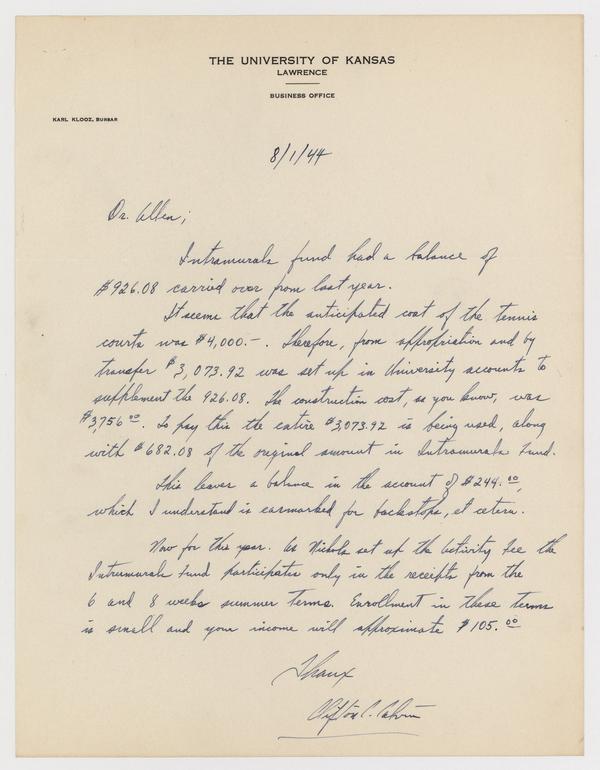 THE UNIVERSITY OF KANSAS
LAWRENCE
BUSINESS OFFICE
KARL KLOOZ, BURSAR
8/1/44
Dr. Allen;
Intramurals fund had a balance of
$926.08 carried over from last year.
It seems that the anticipated cost of the tennis
courts was $4,000.-. Therefore, from appropriation and by
transfer $3,073.92 was set up in University accounts to
supplement the 926.08. The construction cost, as you know, was
$3,756 00. To pay this the entire $3,073.92 is being used, along
with $682.08 of the original amount in Intramurals Fund.
This leaves a balance in the account of $244.00,
which I understand is earmarked for backstops, et cetera.
Now for this year. As Nichols set up the Activity Fee the
Intramurals Fund participates only in the receipts from the
6 and 8 weeks summer terms. Enrollment in these terms
is small and your income will approximate $105.00
Thanx
Clifton C. Calvin